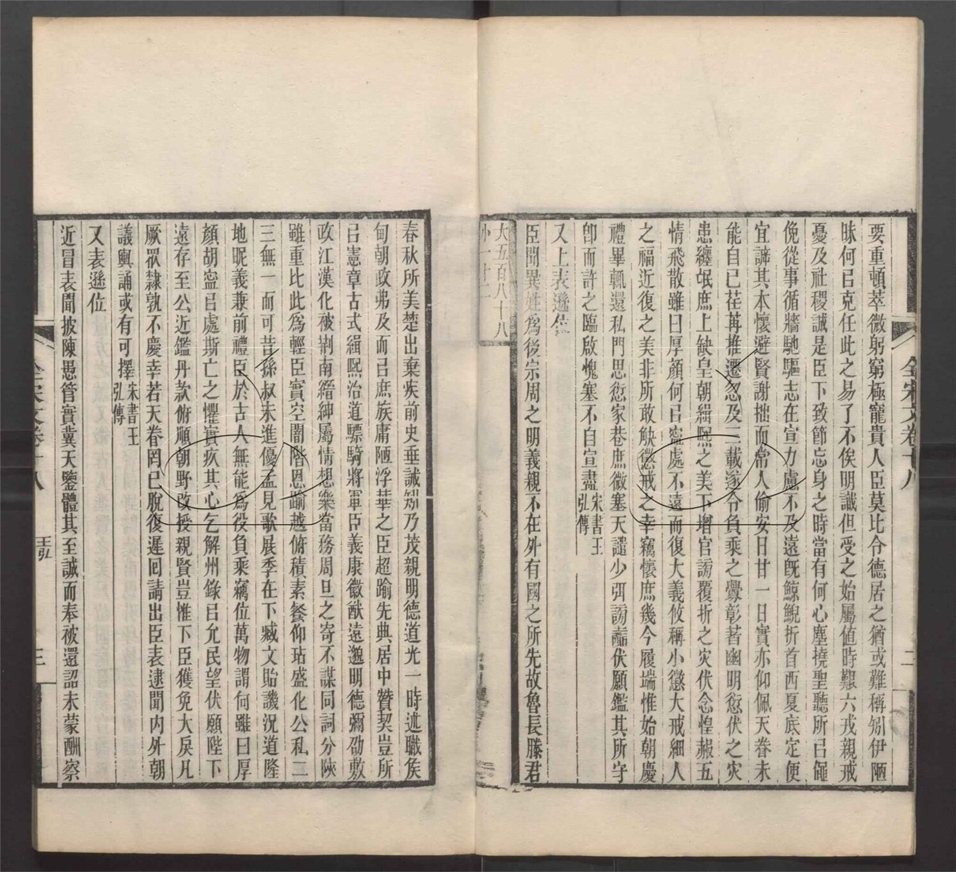 要重頓萃微躬窮極寵貴人臣莫比令德居之猶或難稱矧伊陋
昧何㠯克任此之易了不俟明識但受之始屬值時艱六戎親戒
憂及社稷誠是臣下致節忘身之時當有何心塵撓聖聽所㠯僶
俛從事循牆馳驅志在宣力慮不及遠旣鯨鯢折首西夏底定便
宜諱其本懷避賢謝拙而常人偷安日甘一日實亦仰佩天眷未
能自已荏苒推遷忽及三載遂令負乘之釁彰著幽明愆伏之灾
患纏氓庶上缺皇朝緝熙之美下增官謗覆折之灾伏念惶赧五
情飛散雖曰厚顏何㠯寧處不遠而復大義攸稱小懲大戒細人
之福近復之美非所敢觖懲戒之幸竊懷庶幾今履端惟始朝慶
禮畢輒還私門思愆家巷庶微塞天譴少弭謗讟伏願鑑其所守
卽而許之臨啟愧塞不自宣盡宋書王弘傳
又上表遜位
臣聞異姓爲後宗周之明義親不在外有國之所先故魯長滕君
大五百八十八
小一十二
全宋文卷十八
二
春秋所美楚出棄疾前史垂誡矧乃茂親明德道光一時述職侯
甸朝政弗及而㠯庶族庸陋浮華之臣超踰先典居中贊契豈所
㠯憲章古式緝熙治道驃騎將軍臣義康徽猷遠邈明德彌劭敷
政江漢化被荆南縉紳屬情想樂當務周旦之寄不謀同詞分陝
雖重比此爲輕臣實空闇階恩踰越俯積素餐仰玷盛化公私二
三無一而可昔孫叔未進優孟見歌展季在下臧文貽譏況道隆
地昵義兼前禮臣於古人無能爲役負乘竊位萬物謂何雖曰厚
顏胡寧㠯處斯亡之懼實疚其心乞解州錄㠯允民望伏願陛下
遠存至公近鑑丹款俯順朝野改授親賢豈惟下臣獲免大戾凡
厥眾隸孰不慶幸若天眷罔已脫復遲回請出臣表逮聞内外朝
議輿誦或有可擇宋書王弘傳
又表遜位
近冒表聞披陳愚管實冀天鑒體其至誠而奉被還詔未蒙酬察
全宋文卷十八
王弘
三